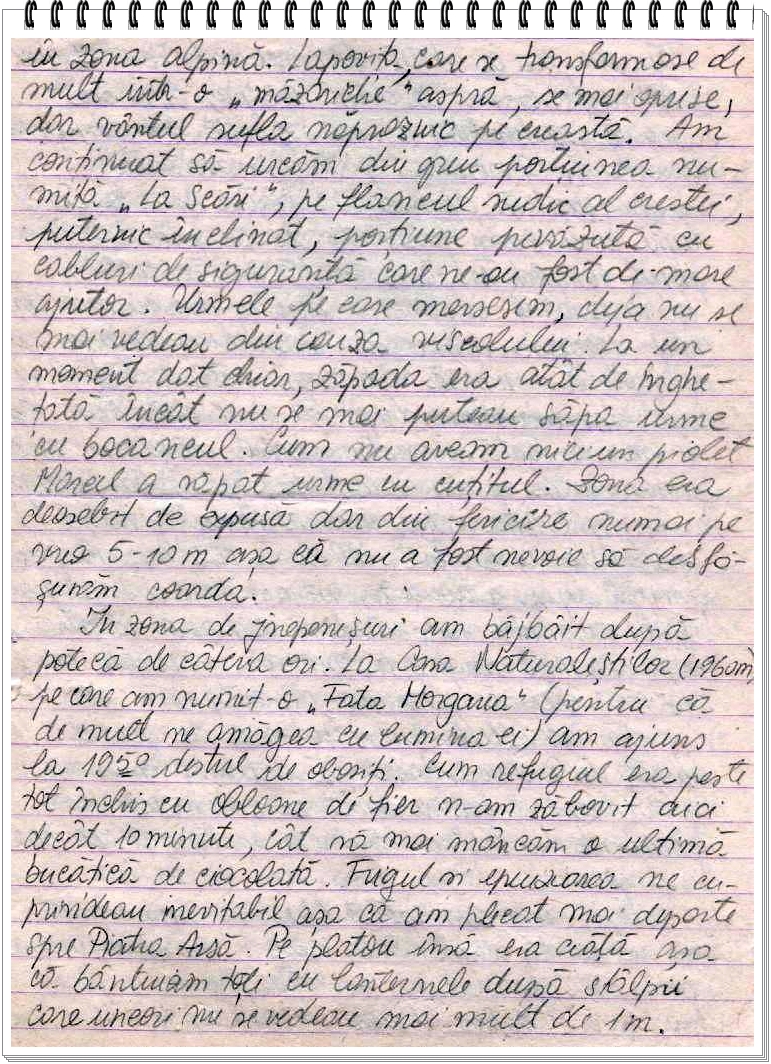 în zona alpină. Lapovița, care se transformase de
mult într-o „măzăriche" aspră, se mai oprise,
dar vântul sufla năpraznic pe creastă. Am
continuat să urcăm din greu porțiunea nu-
mită „La Scări", pe flancul sudic al crestei,
puternic înclinat, porțiune prevăzută cu
cabluri de siguranță care ne-au fost de mare
ajutor. Urmele pe care mersesem, deja nu se
mai vedeau din cauza viscolului. La un
moment dat chiar, zăpada era atât de înghe-
țată încât nu se mai puteau săpa urme
cu bocancul. Cum nu aveam niciun piolet
Marcel a săpat urme cu cuțitul. Zona era
deosebit de expusă dar din fericire numai pe
vreo 5-10 m așa că nu a fost nevoie să desfă-
șurăm coarda.
În zona de jnepenișuri am bâjbâit după
potecă de câteva ori. La Casa Naturaliștilor (1960m)
pe care am numit-o „Fata Morgana" (pentru că
de mult ne amăgea cu lumina ei) am ajuns
la 19⁵⁰ destul de obosiți. Cum refugiul era peste
tot închis cu obloane de fier n-am zăbovit aici
decât 10 minute, cât să mai mâncăm o ultimă
bucățică de ciocolată. Frigul și epuizarea ne cu-
prindeau inevitabil așa că am plecat mai departe
spre Piatra Arsă. Pe platou însă era ceață așa
că bântuiam toți cu lanternele după stâlpii
care uneori nu se vedeau mai mult de 1m.